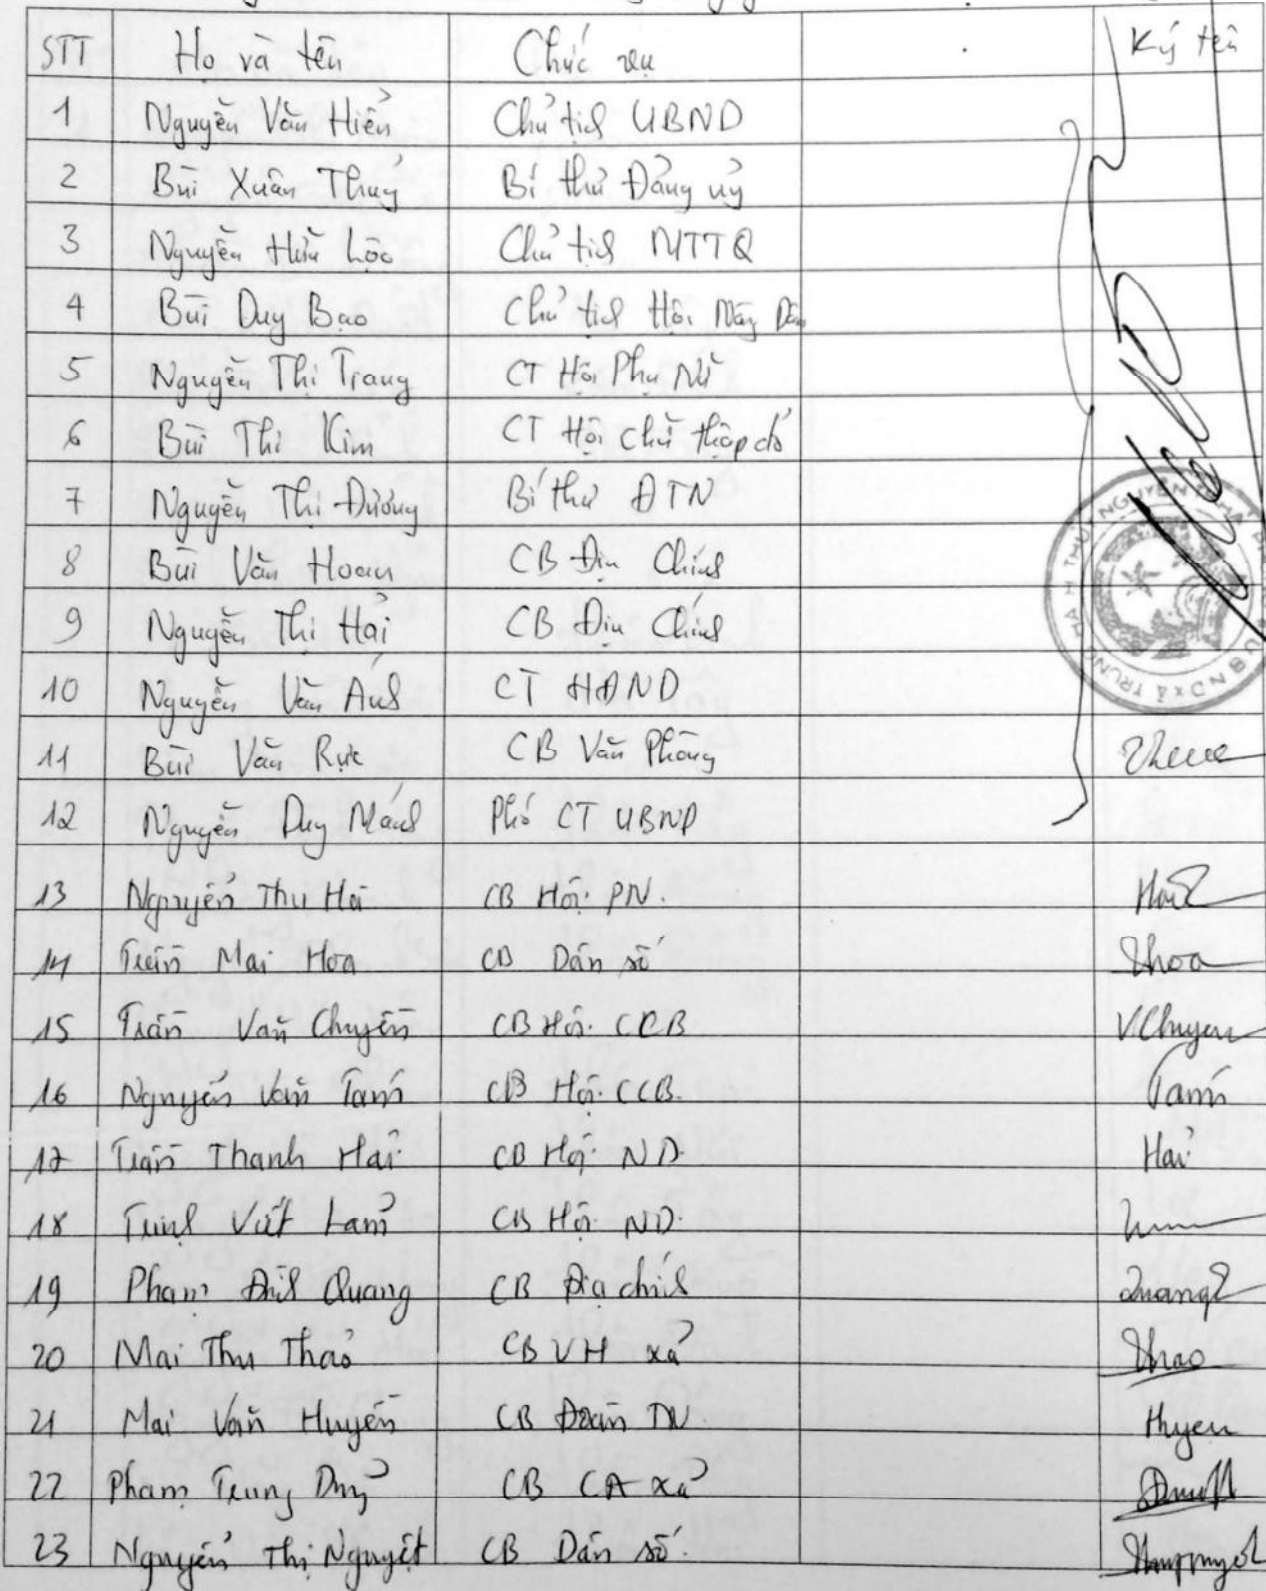 STT Họ và tên Chức vụ Ký tên
1 Nguyễn Văn Hiển Chủ tịch UBND
2 Bùi Xuân Thuỷ Bí thư Đảng uỷ
3 Nguyễn Hữu Lộc Chủ tịch MTTQ
4 Bùi Duy Bao Chủ tịch Hội Nông Dân
5 Nguyễn Thị Trang CT Hội Phụ Nữ
6 Bùi Thị Kim CT Hội chữ thập đỏ
7 Nguyễn Thị Đương Bí thư ĐTN
8 Bùi Văn Hoan CB Địa Chính
9 Nguyễn Thị Hải CB Địa Chính
10 Nguyễn Văn Anh CT HĐND
11 Bùi Văn Rực CB Văn Phòng
12 Nguyễn Duy Mạnh Phó CT UBND
13 Nguyễn Thu Hà CB Hội PN.
14 Trần Mai Hoa CB Dân số Hoa
15 Trần Văn Chuyên CB Hội CCB VChuyen
16 Nguyễn Văn Tám CB Hội CCB. Tám
17 Trần Thanh Hải CB Hội ND. Hải
18 Trịnh Viết Lam CB Hội ND.
19 Phạm Đình Quang CB Địa chính Quang
20 Mai Thu Thảo CB VH xã Thao
21 Mai Văn Huyên CB Đoàn TN. Huyen
22 Phạm Trung Duy CB CA xã
23 Nguyễn Thị Nguyệt CB Dân số.